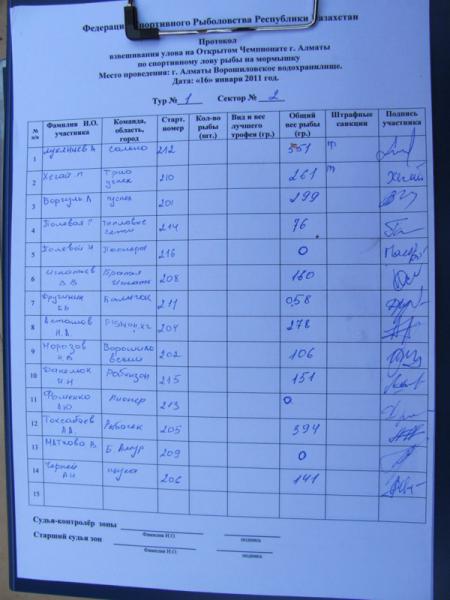 Федерация Спортивного Рыболовства Республики Казахстан
Протокол
взвешивания улова на Открытом Чемпионате г. Алматы
по спортивному лову рыбы на мормышку
Место проведения: г. Алматы Ворошиловское водохранилище.
Дата: «16» января 2011 год.
Тур № 1 Сектор № 2
№ п/п Фамилия И.О. участника Команда, область, город Старт. номер Кол-во рыбы (шт.) Вид и вес лучшего трофея (гр.) Общий вес рыбы (гр.) Штрафные санкции Подпись участника
1 Сальмо 212 551
2 Хегай Трио успех 210 261 Хегай
3 успех 201 199
4 Полевая Г Тепловые сети 214 76
5 Полевой 216 0
6 Игнатьев В.В. Братья 208 160
7 211 058
8 Асташов Н.А. 204 278
9 Морозов Ворошиловский 202 106
10 Данелюк И.Н Робинзон 215 151
11 Фоменко А.Ю. Пионер 213 0
12 Рыбачек 205 394
13 Маткова В. Б. Амур 209 0
14 Черней А.Н щука 206 141
15
Судья-контролёр зоны
Фамилия И.О. подпись
Старший судья зон
Фамилия И.О. подпись